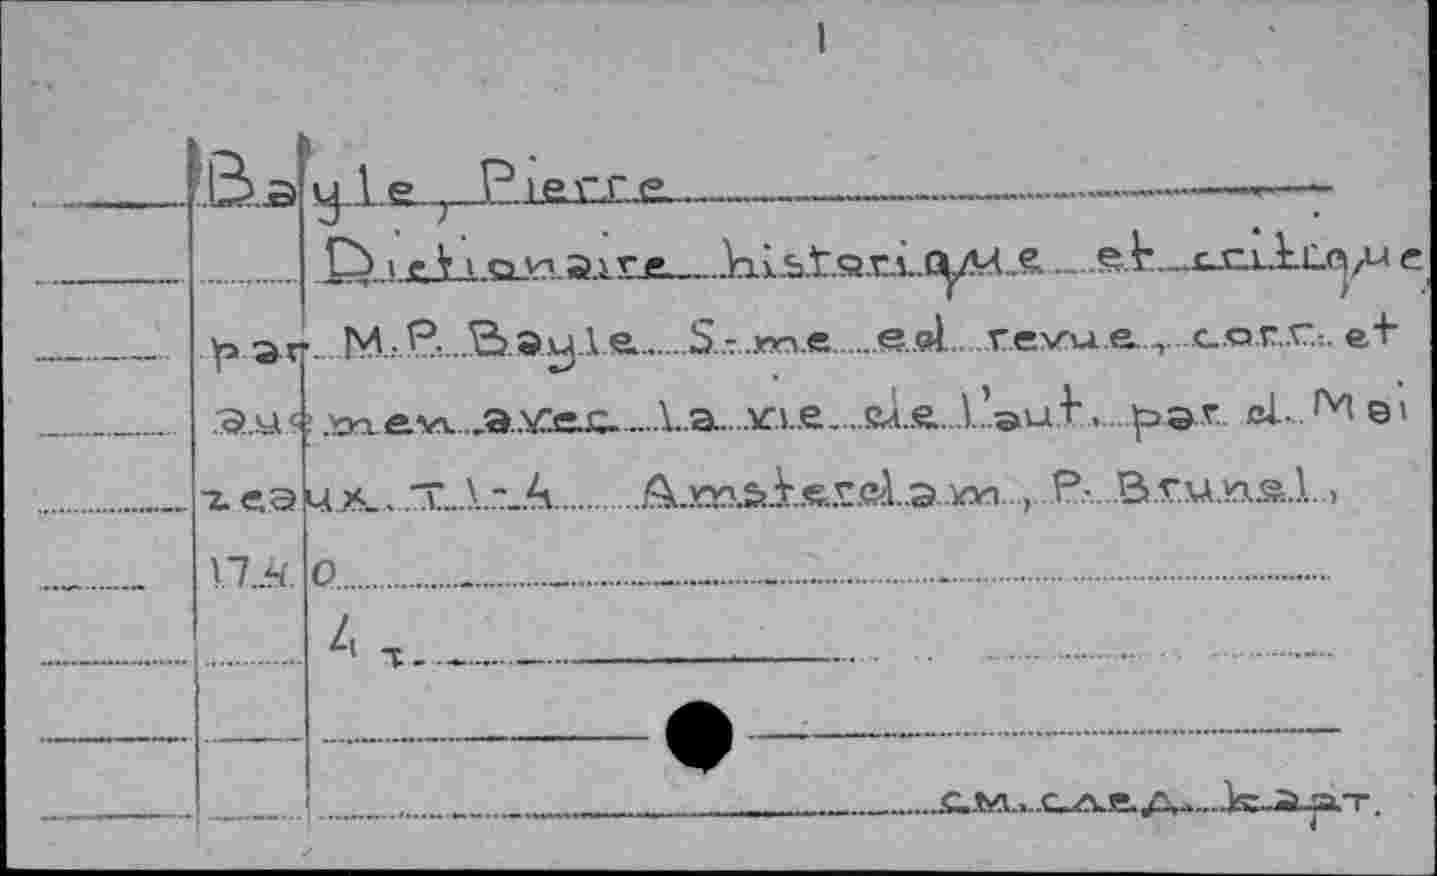 1
Bayle, Pierre
Dictionaire historique et critique
par M.P. Bayle. S-me ed. revue, corr. et
augmen. avec la vie de l'aut. par d. Mai
zeaux. T. 1-4 Amsterdam, P. Brunel,
1740
4 т.
см. след. карт.